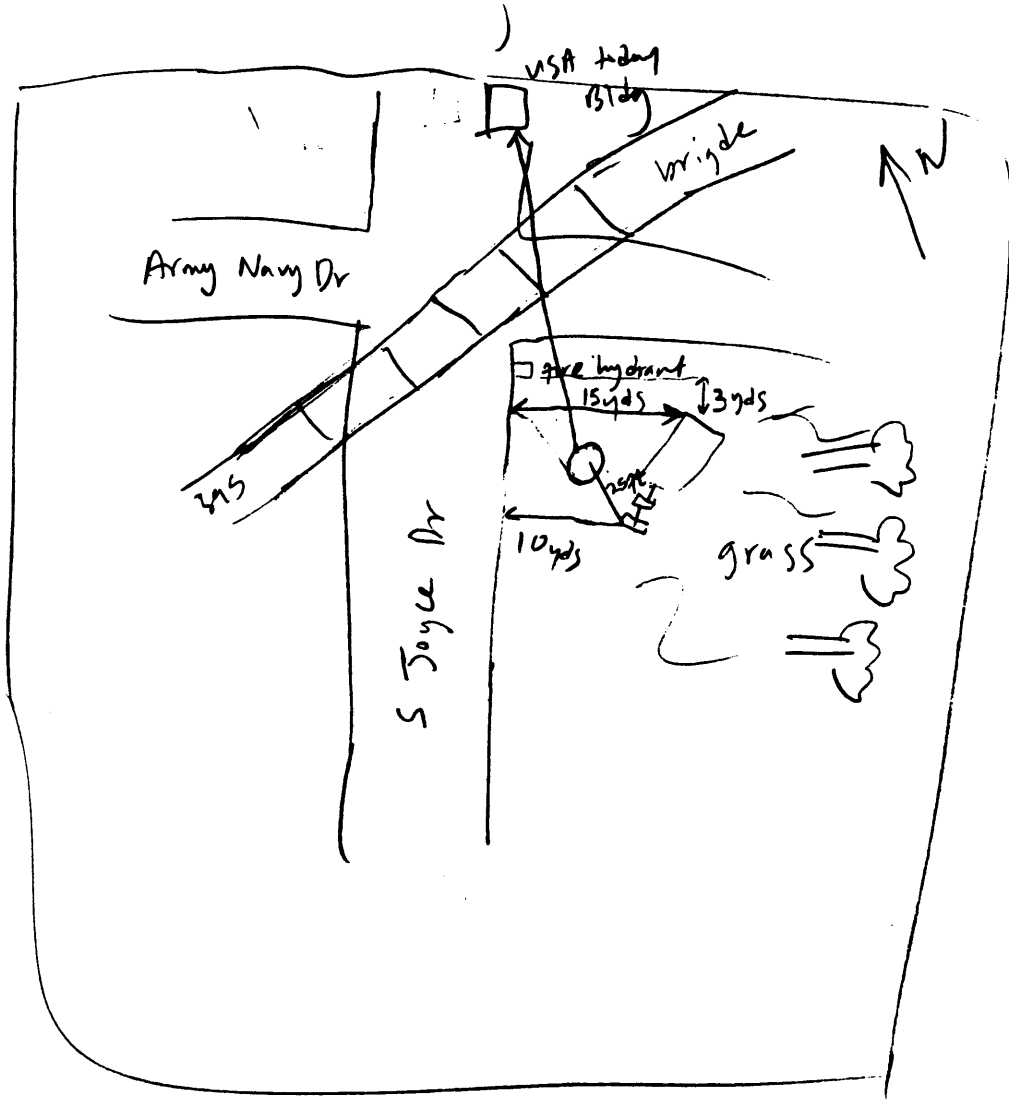 USA today
Bldg
brigde
N
Army Navy Dr
fire hydrant
15yds
3yds
395
25ft
10yds
grass
S Joyce Dr